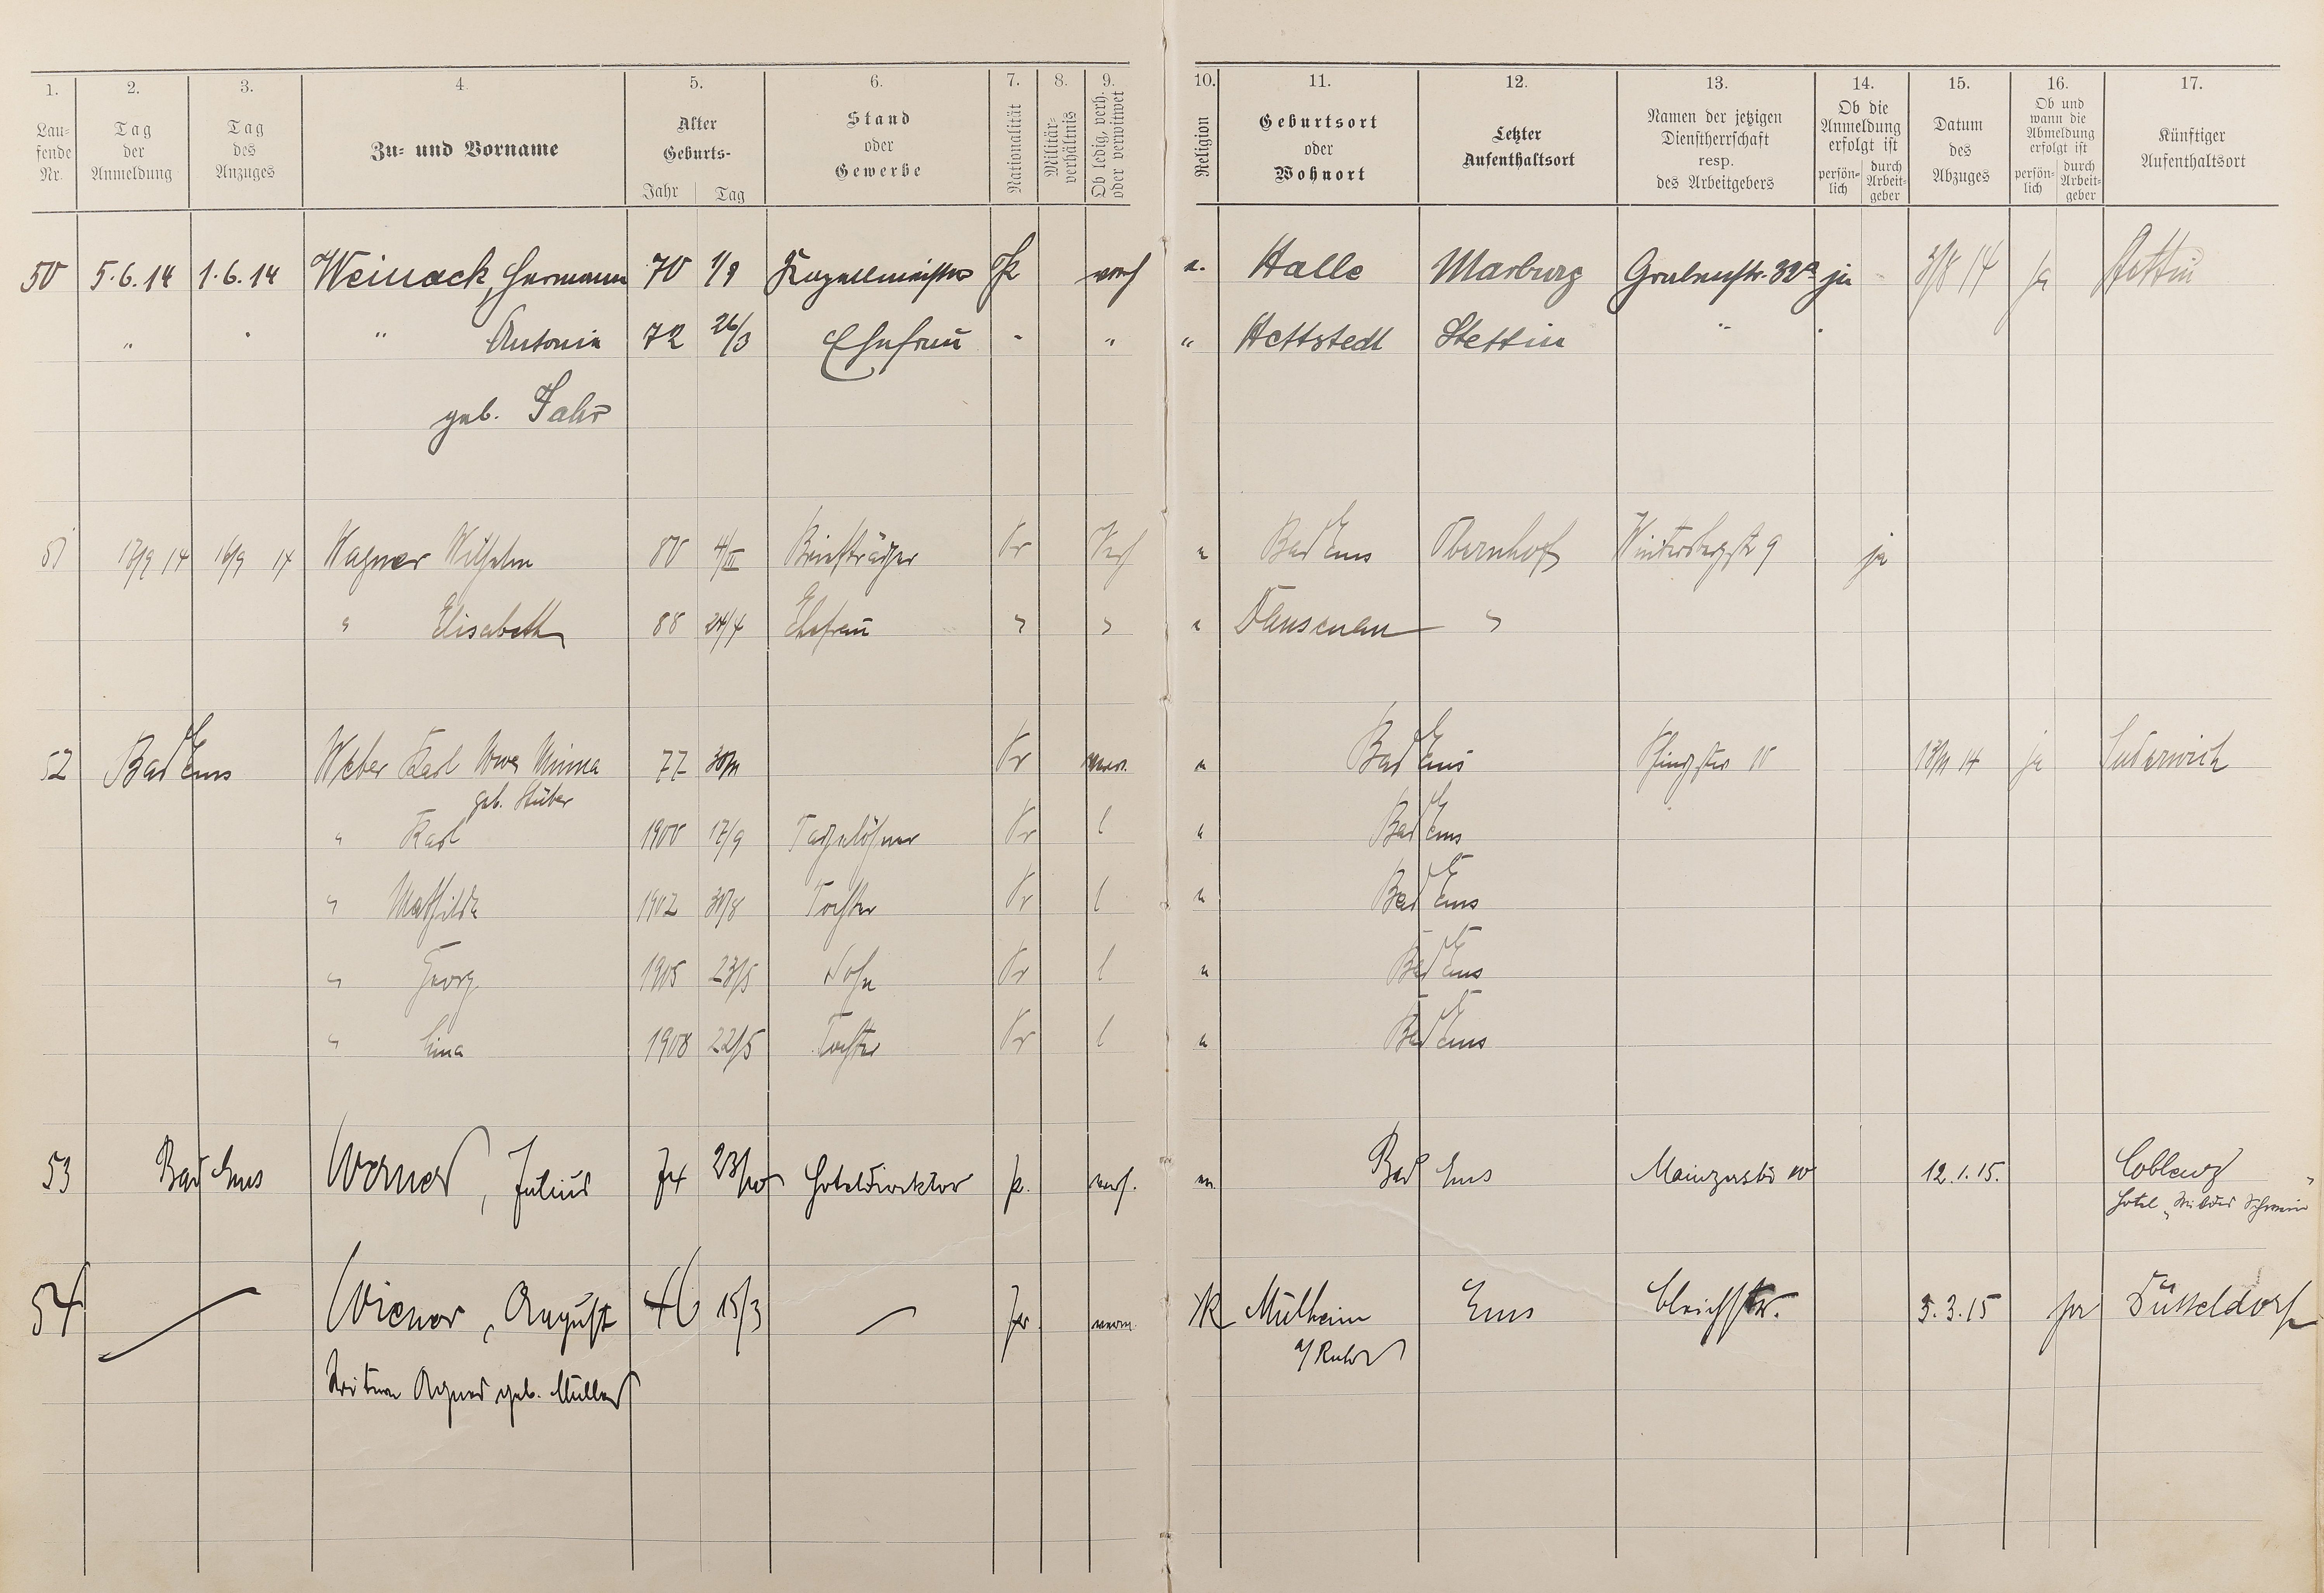 1. 2. 3. 4. 5. 6. 7. 8. 9. 10. 11. 12. 13. 14. 15. 16. 17.
Lau-
fende
Nr.
Tag
der
Anmeldung
Tag
des
Anzuges
Zu- und Vorname
Alter
Geburts-
Jahr Tag
Stand
oder
Gewerbe
Nationalität
Militär-
verhältnis
Ob ledig, verh.
oder verwitwet
Religion
Geburtsort
oder
Wohnort
Letzter
Aufenthaltsort
Namen der jetzigen
Dienstherrschaft
resp.
des Arbeitgebers
Ob die
Anmeldung
erfolgt ist
persön-
lich
durch
Arbeit-
geber
Datum
des
Abzuges
Ob und
wann die
Abmeldung
erfolgt ist
persön-
lich
durch
Arbeit-
geber
Künftiger
Aufenthaltsort
50 5.6.14 1.6.14 Weinack, Hermann 70 1/9 Kapellmeister Pr verh e. Halle Marburg Grabenstr. 32a ja 3/8 14 ja Stettin
" " " Antonie 72 26/3 Ehefrau " " " Hettstedt Stettin "
geb. Jahr
51 17/9 14 16/9 14 Wagner Wilhelm 80 4/III Briefträger Pr Verh e Bad Ems Obernhof Wintersbergstr 9 ja
" Elisabeth 88 24/4 Ehefrau " " e Dausenau "
52 Bad Ems Weber Karl Wwe Minna 77 Pr e Bad Ems 14 ja Suderwich
geb. Stüber
" Karl 1900 17/9 Tagelöhner Pr l e Bad Ems
" Mathilde 1902 30/8 Tochter Pr l e Bad Ems
" Georg 1905 23/5 Sohn Pr l e Bad Ems
" Lina 1908 22/5 Tochter Pr l e Bad Ems
53 Bad Ems Werner, Julius 74 23/10 Hoteldirektor p. verh. ev. Bad Ems Mainzerstr 10 12.1.15. Coblenz
Hotel "Wildes Schwein"
54 — Wiener, August 46 15/3 — Pr. K Mülheim Ems Bleichstr. 5.3.15 ja Düsseldorf
a/Ruhr
Agnes geb. Müller